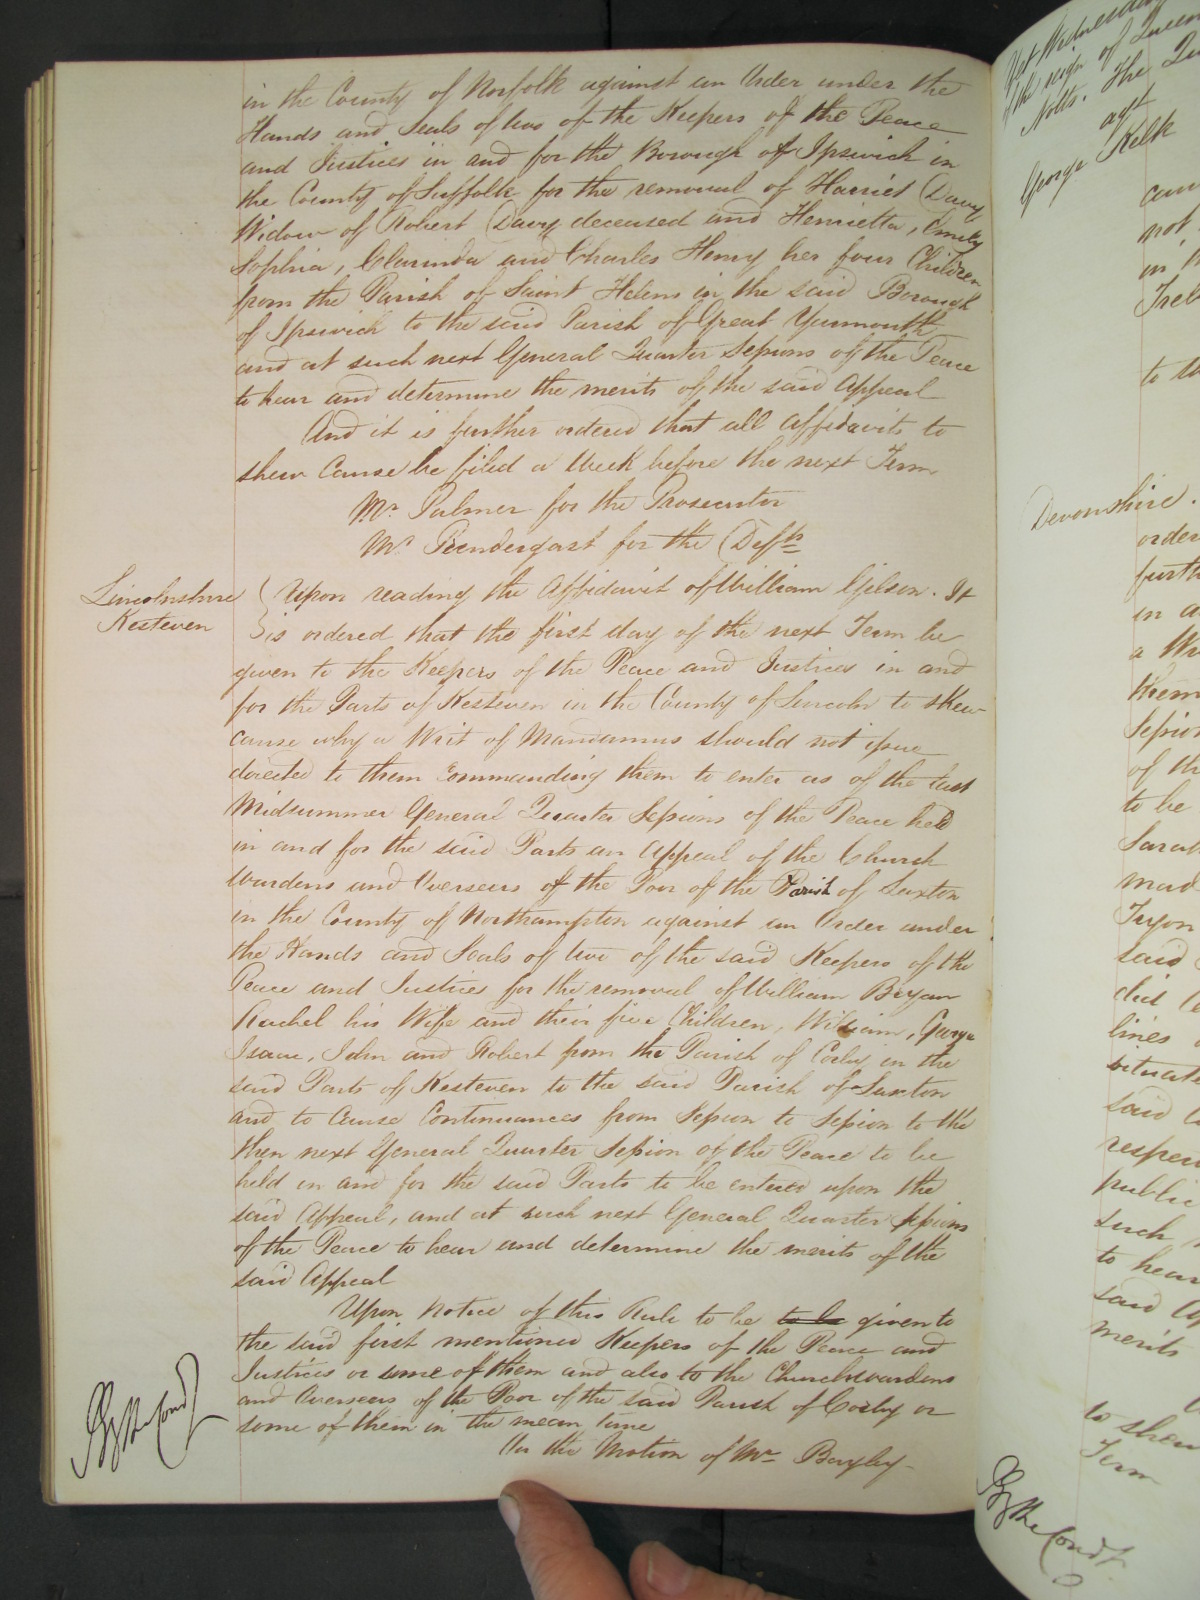 in the County of Norfolk against an Order under the
Hands and Seals of two of the Keepers of the Peace
and Justices in and for the Borough of Ipswich in
the County of Suffolk for the removal of Harriet Davy
Widow of Robert Davy deceased and Henrietta, Emily
Sophia, Clarinda and Charles Henry her four Children
from the Parish of Saint Helens in the said Borough
of Ipswich to the said Parish of Great Yarmouth
and at such next General Quarter Sessions of the Peace
to hear and determine the merits of the said Appeal
And it is further ordered that all affidavits to
shew Cause be filed a Week before the next Term
Mr. Palmer for the Prosecutor
Mr. Prendergast for the Defts
Lincolnshire
Kesteven
Upon reading the Affidavit of William Gilson. It
is ordered that the first day of the next Term be
given to the Keepers of the Peace and Justices in and
for the Parts of Kesteven in the County of Lincoln to shew
cause why a Writ of Mandamus should not issue
directed to them Commanding them to enter as of the last
Midsummer General Quarter Sessions of the Peace held
in and for the said Parts an Appeal of the Church
wardens and Overseers of the Poor of the Parish of Laxton
in the County of Northampton against an Order under
the Hands and Seals of two of the said Keepers of the
Peace and Justices for the removal of William Bryan
Rachel his Wife and their five Children, William, George
Isaac, John and Robert from the Parish of Corby in the
said Parts of Kesteven to the said Parish of Laxton
and to cause Continuances from Session to Session to the
then next General Quarter Session of the Peace to be
held in and for the said Parts to be entered upon the
said Appeal, and at such next General Quarter Sessions
of the Peace to hear and determine the merits of the
said Appeal
Upon Notice of this Rule to be to be given to
the said first mentioned Keepers of the Peace and
Justices or some of them and also to the Churchwardens
and Overseers of the Poor of the said Parish of Corby or
some of them in the mean time
On the Motion of Mr. Bayley
By the Court
Yet Wednesday
of the reign of Queen
Notts. The Qu
agt
George Kelk
not
in
to
Devonshire.
order
furth
in a
a Wr
them
Session
of th
to be
Sarah
mad
Tryon
said
did
lines
situate
said
respec
public
such
to hear
said Ap
merits
to shew
Term
By the Court